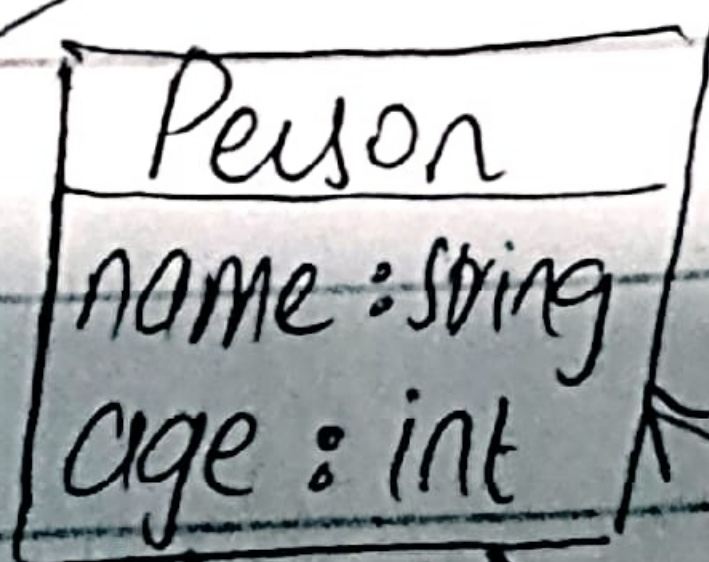 Person
name : string
age : int